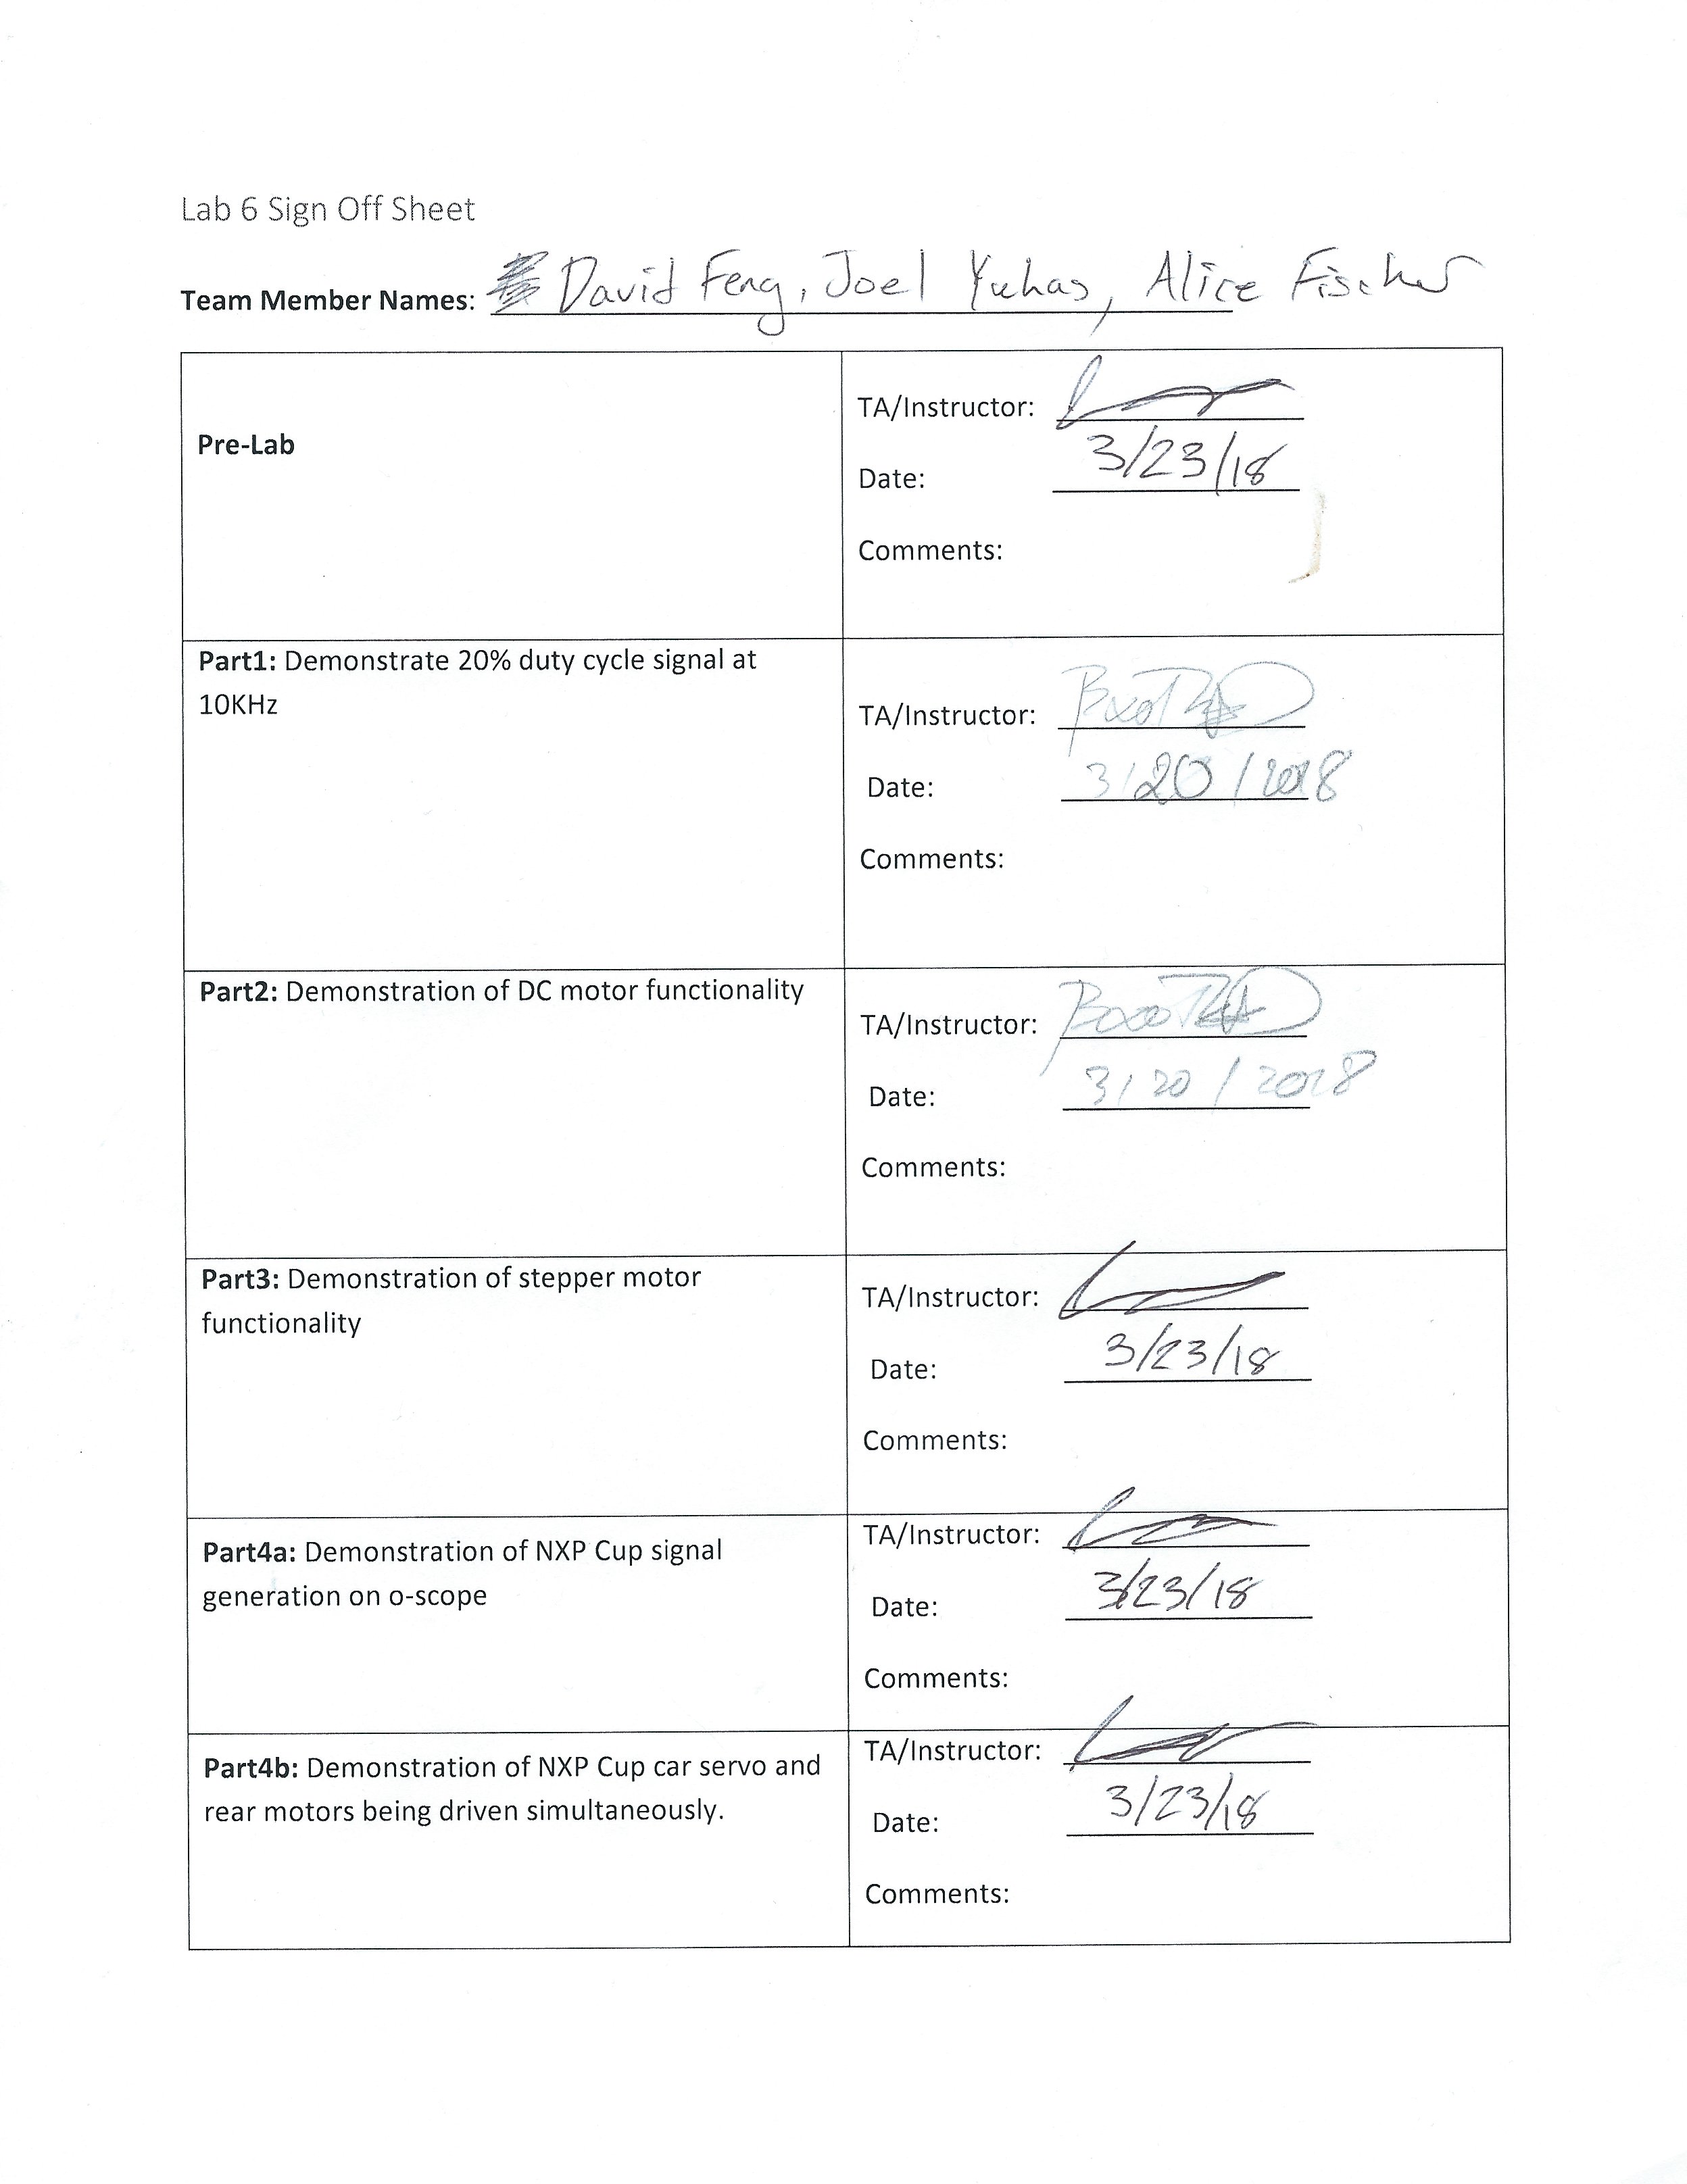 Lab 6 Sign Off Sheet
Team Member Names: David Feng, Joel Yuhas, Alice Fischer
Pre-Lab
TA/Instructor:
Date: 3/23/18
Comments:
Part1: Demonstrate 20% duty cycle signal at
10KHz
TA/Instructor:
Date: 3/20/2018
Comments:
Part2: Demonstration of DC motor functionality
TA/Instructor:
Date: 3/20/2018
Comments:
Part3: Demonstration of stepper motor
functionality
TA/Instructor:
Date: 3/23/18
Comments:
Part4a: Demonstration of NXP Cup signal
generation on o-scope
TA/Instructor:
Date: 3/23/18
Comments:
Part4b: Demonstration of NXP Cup car servo and
rear motors being driven simultaneously.
TA/Instructor:
Date: 3/23/18
Comments: